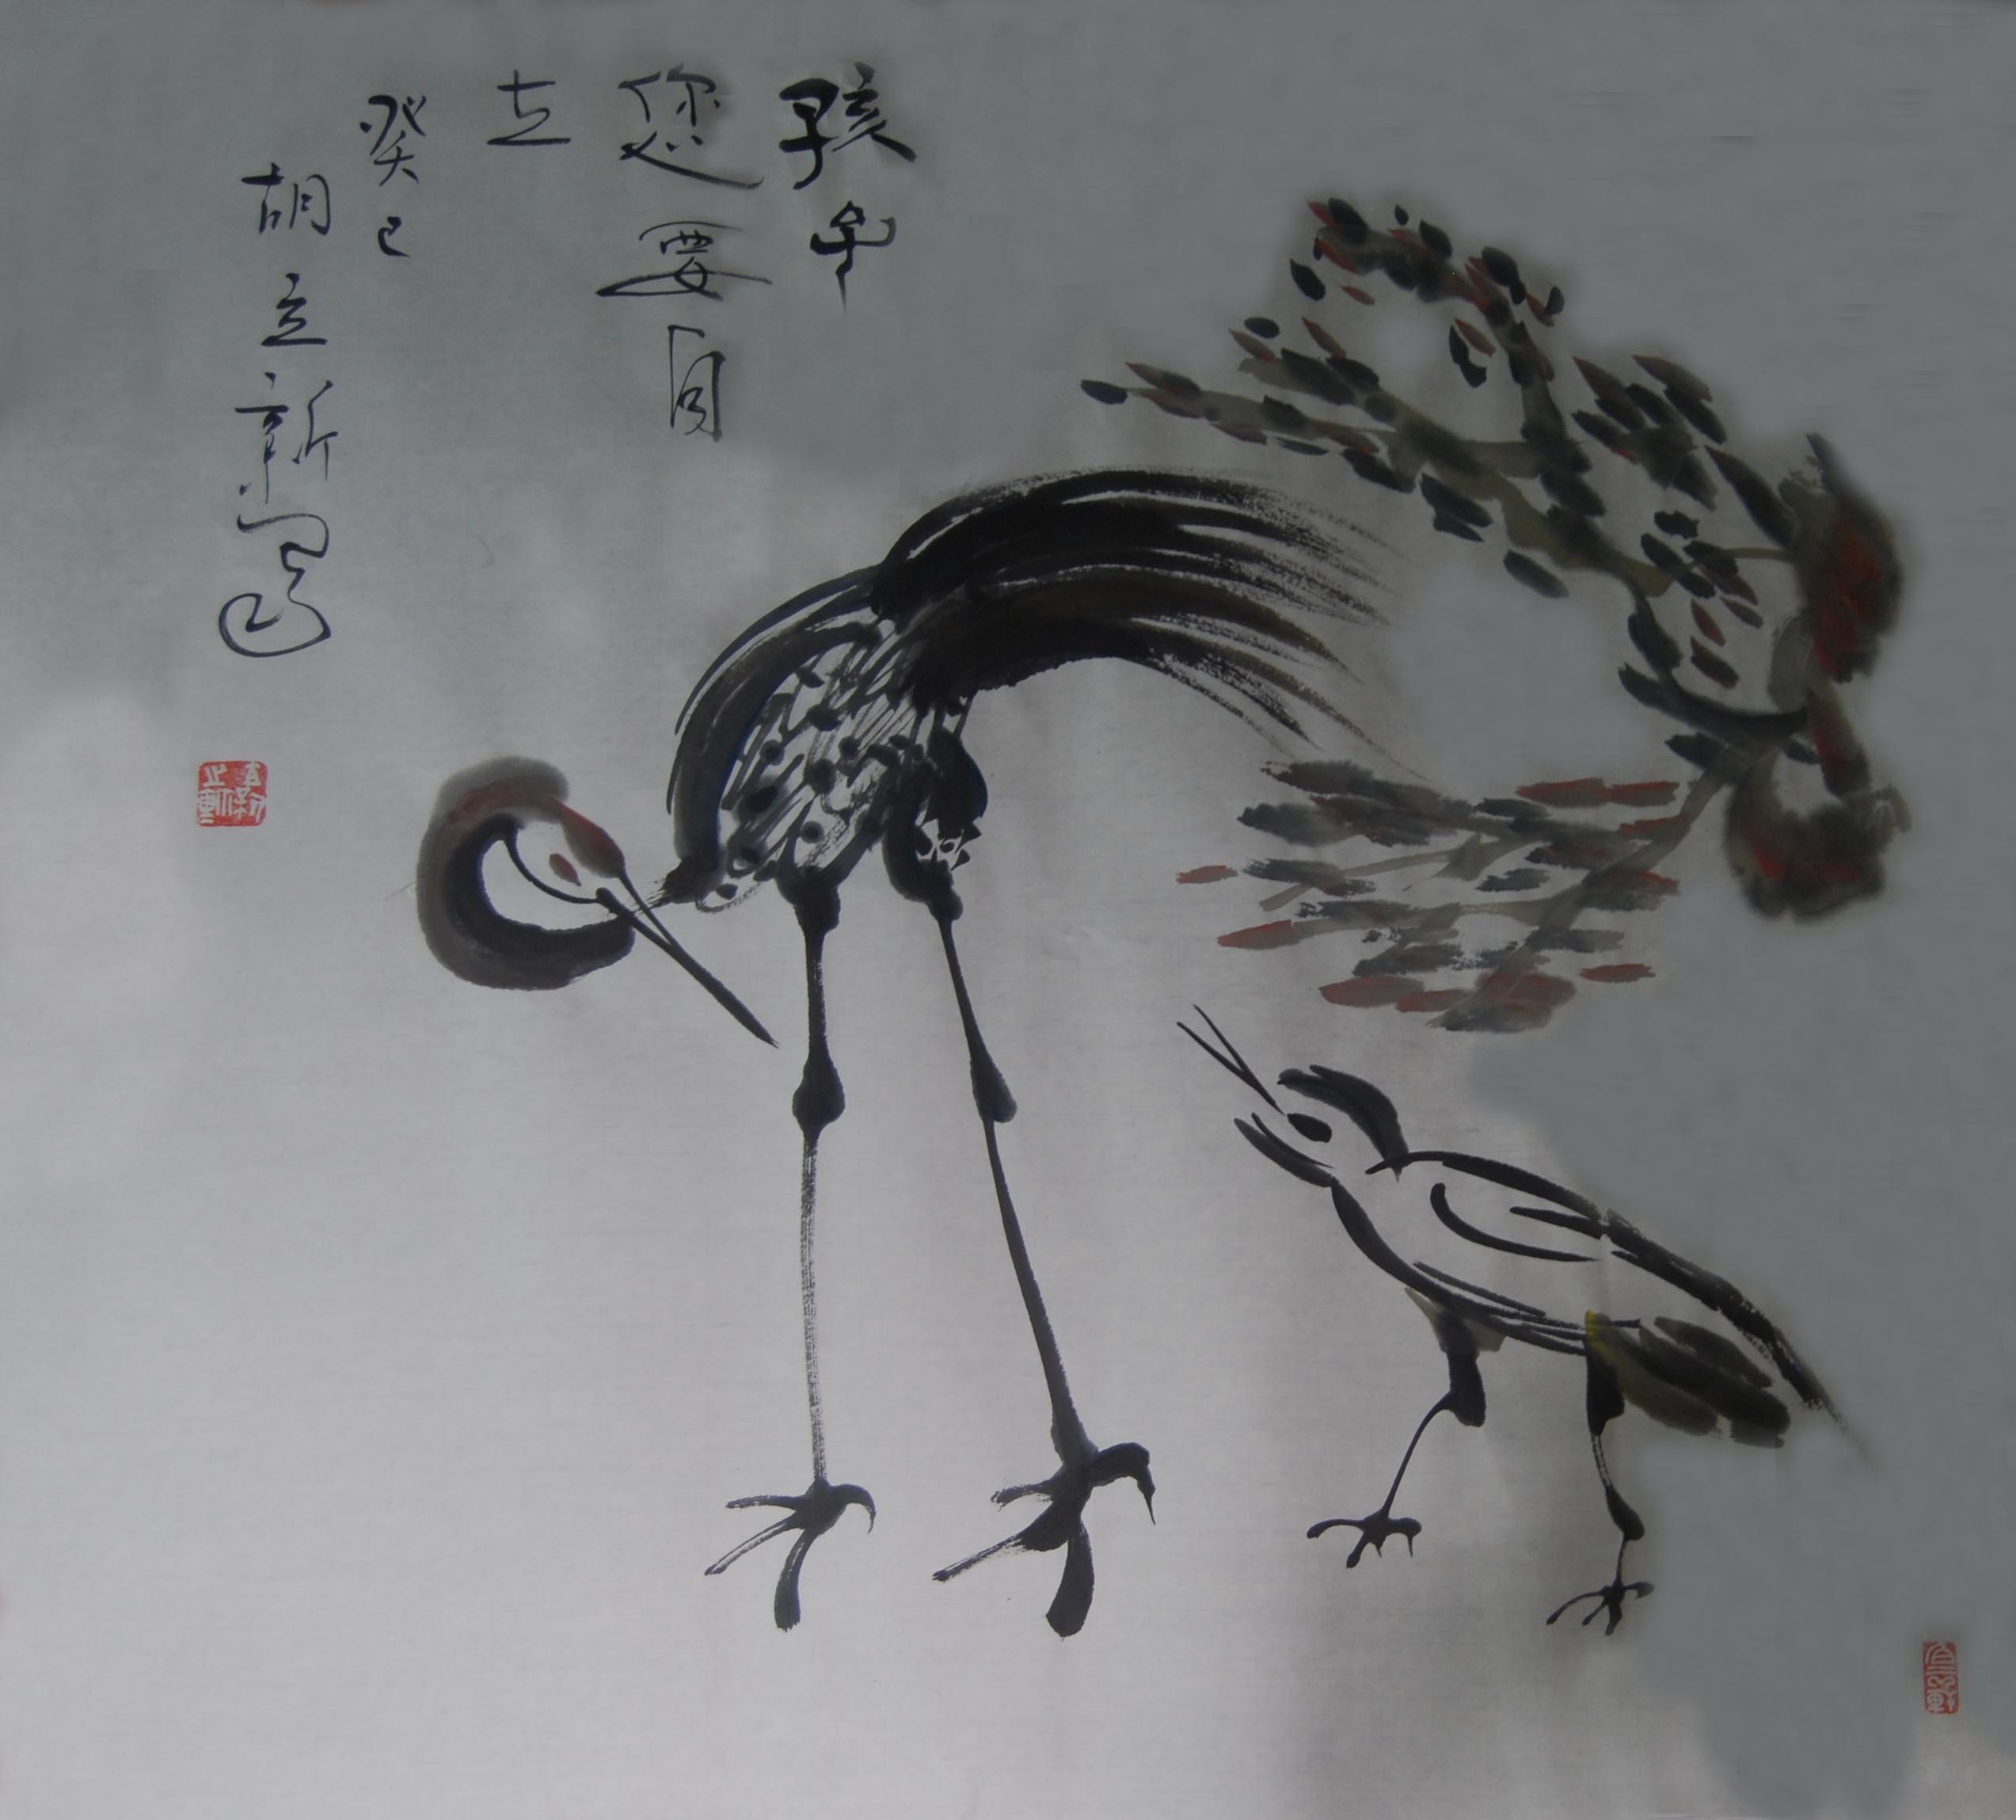 孩子
您要自
立
癸巳
胡立新写